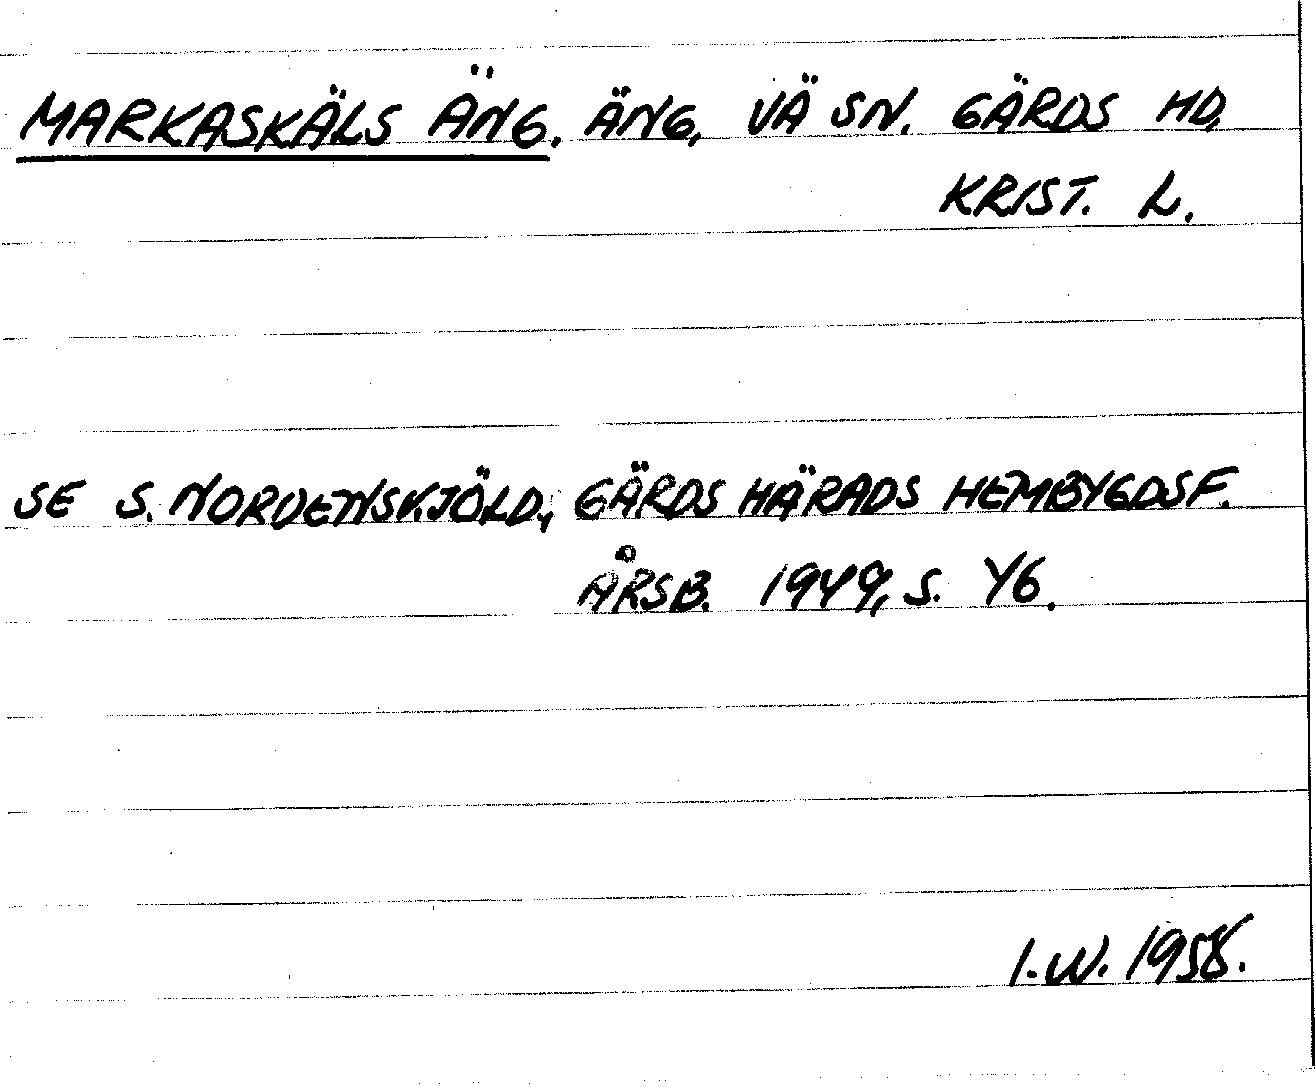 MARKASKÄLS ÄNG. ÄNG, VÄ SN. GÄRDS HD,
KRIST. L.
SE S. NORDENSKJÖLD, GÄRDS HÄRADS HEMBYGDSF.
ÅRSB. 1949, S. 46.
I.W. 1958.